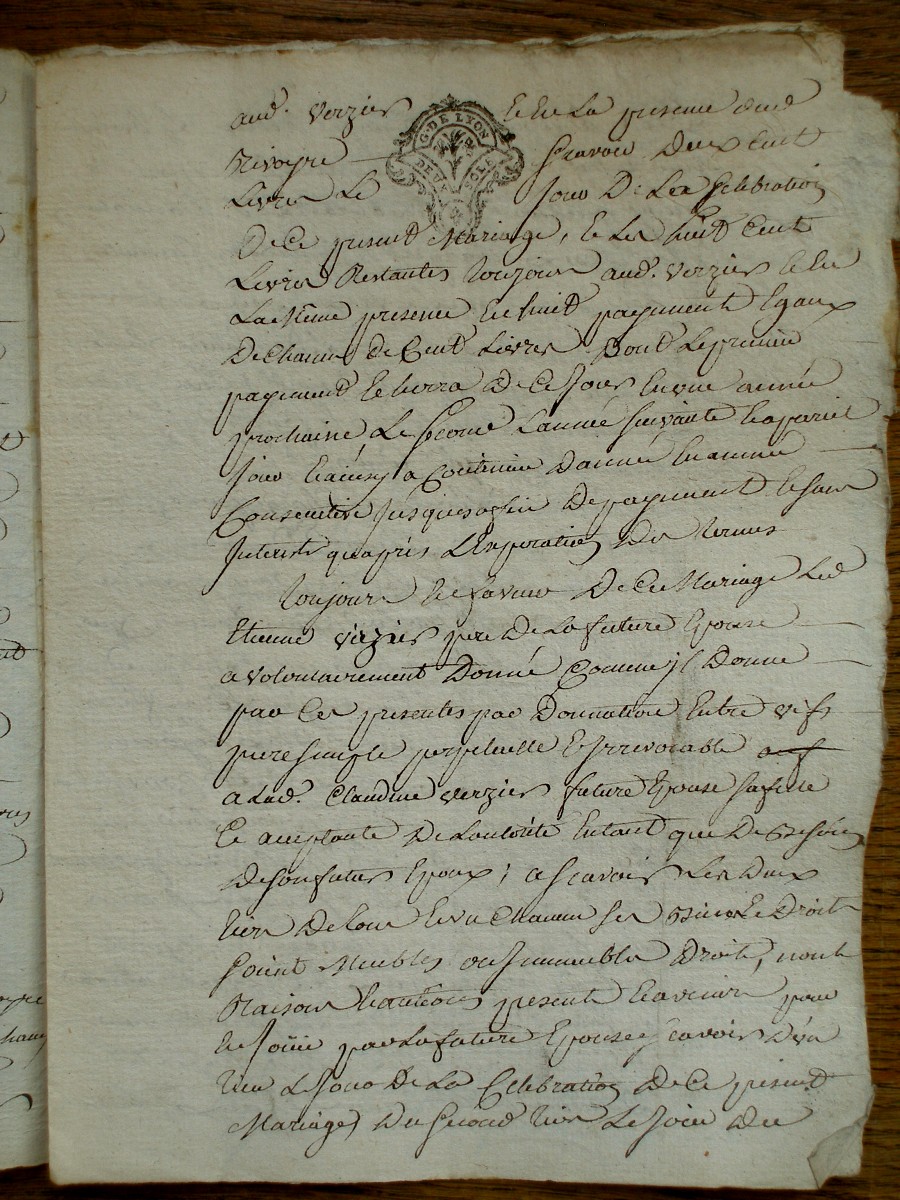 aud. Verzier et en La presence dud
Rivoyre scavoir Deux Cent
G. DE LYON
DEUX SOLS
Livres Le Jour De La Celebration
De Ce present Mariage, et Les huit Cent
Livres Restantes toujours aud. Verzier et en
La même presence en huit payement Egaux
De Chacun De Cent Livres Dont Le premier
payement se fera De Ce Jour en une année
prochaine, Le second L'année suivante a pareil
Jour a Continuer D'année en année
Consecutive Jusques a fin De payement et sans
Interests qu'après L'Expiration Des termes
Toujours en faveur De Ce Mariage Led
Etienne Verzier pere De La future Epouse
a volontairement Donné Comme jl Donne
par Ces presentes par Donnation Entre vifs
pure simple perpetuelle et Irrevocable
a Lad. Claudine Verzier future Epouse sa fille
Ce acceptante De L'autorité Entant que De Besoin
De son futur Epoux, a scavoir Les Deux
tiers De tous et un Chacun ses Biens et Droits
soient Meubles ou Immeubles Droits, noms
Raisons actions present et avenir pour
en Joüir par La future Epouse scavoir D'un
tiers Le Jour De La Celebration De Ce present
Mariage, Du second tiers Le Jour Du